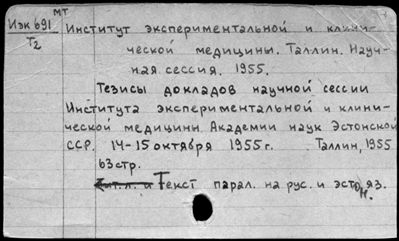 мт
Изк 691
T2
Институт экспериментальной и клини-
ческой медицины. Таллин. Науч-
ная сессия. 1955.
Тезисы докладов научной сессии
Института экспериментальной и клини-
ческой медицины Академии наук Эстонской
ССР. 14-15 октября 1955 г. Таллин, 1955
63 стр.
и Текст парал. на рус. и эстон. яз.